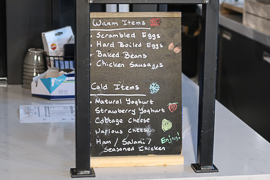 Warm Items
Scrambled Eggs
Hard Boiled Eggs
Baked Beans
Chicken Sausages
Cold Items
Natural Yoghurt
Strawberry Yoghurt
Cottage Cheese
Various Cheese
Ham / Salami /
Seasoned Chicken
Enjoy!